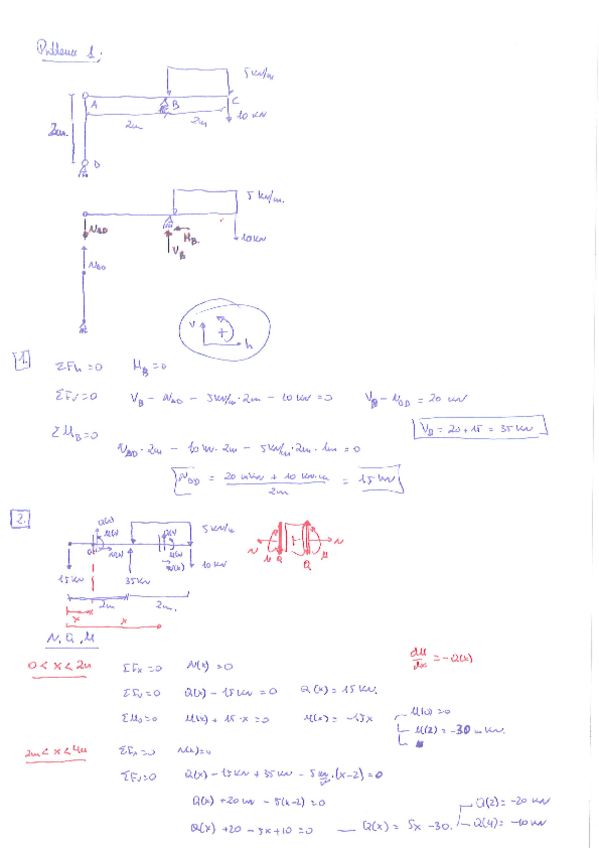 Problema 1:
5 kN/m
A
B
C
10 kN
2m
2m
2m
D
5 kN/m.
N_BD
H_B
10 kN
V_B
N_BD
V
+
h
1.
ΣF_H=0 H_B=0
ΣF_V=0 V_B - N_BD - 5kN/m·2m - 10 kN = 0 V_B - N_BD = 20 kN
ΣM_B=0
V_B = 20 + 15 = 35 kN
N_BD · 2m - 10 kN · 2m - 5kN/m · 2m · 1m = 0
N_BD = (20 mkN + 10 kN·m)/2m = 15 kN
2.
5 kN/m
Q(x)
M(x)
N(x)
M(x)
N(x)
10 kN
15 kN
35 kN
N M Q Q M N
2m
2m.
x
x
N, Q, M
0 < x < 2m ΣF_x=0 N(x)=0
dM/dx = -Q(x)
ΣF_V=0 Q(x) - 15 kN = 0 Q(x) = 15 kN.
ΣM_O=0 M(x) + 15·x = 0 M(x) = -15x
M(0) = 0
M(2) = -30 m kN.
2m < x < 4m ΣF_x=0 N(x)=0
ΣF_V=0 Q(x) - 15 kN + 35 kN - 5 kN/m·(x-2) = 0
Q(x) + 20 kN - 5(x-2) = 0
Q(2) = -20 kN
Q(x) + 20 - 5x + 10 = 0 — Q(x) = 5x - 30.
Q(4) = -10 kN